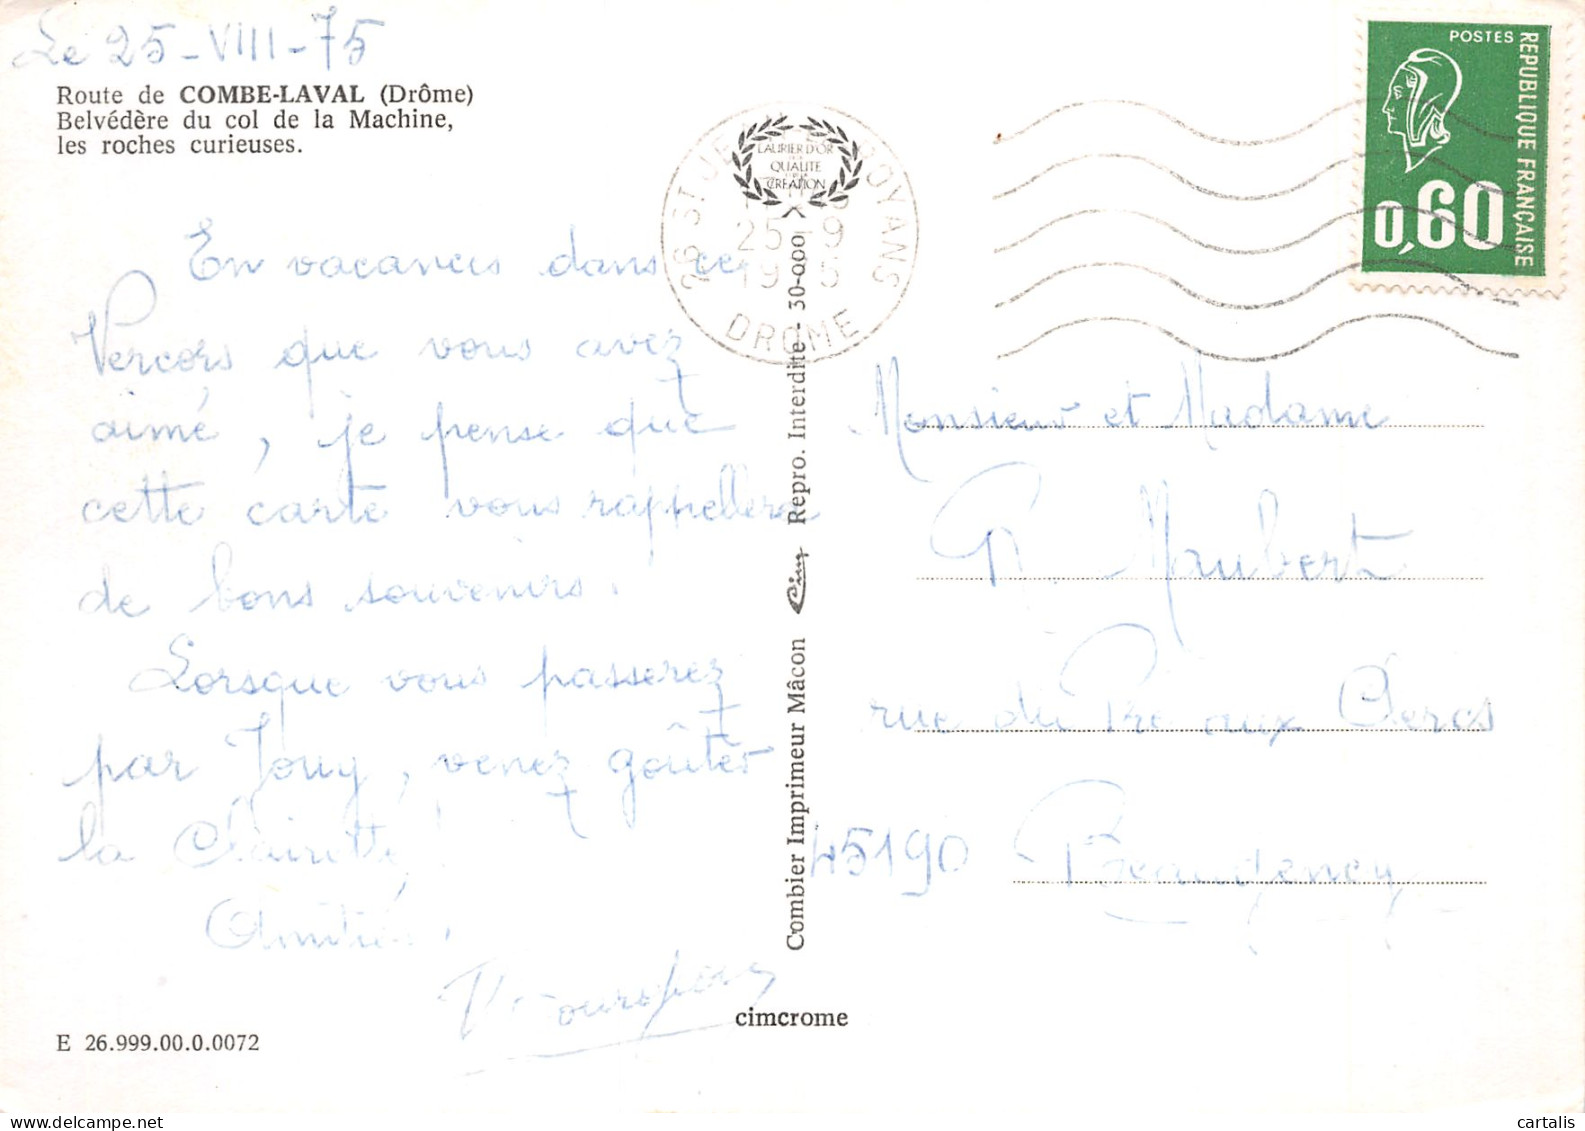 Le 25-VIII-75
Route de COMBE-LAVAL (Drôme)
Belvédère du col de la Machine,
les roches curieuses.
En vacances dans ce
Vercors que vous avez
aimé, je pense que
cette carte vous rappellera
de bons souvenirs.
Lorsque vous passerez
par Jouy, venez goûter
la Clairette!
Amitiés.
E 26.999.00.0.0072
cimcrome
Combier Imprimeur Mâcon Cim Repro. Interdite - 30-000
LAURIER D'OR
QUALITÉ
CRÉATION
26 ST JE OYANS
25-9
19 5
DROME
POSTES
REPUBLIQUE FRANÇAISE
0,60
Monsieur et Madame
Maubert
rue du Pré aux Clercs
45190 Beaugency
cartalis